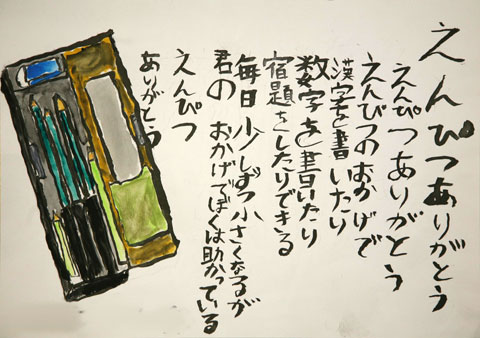 えんぴつありがとう
えんぴつありがとう
えんぴつのおかげで
漢字を書いたり
数字を書いたり
宿題をしたりできる
毎日少しずつ小さくなるが
君のおかげでぼくは助かっている
えんぴつ
ありがとう